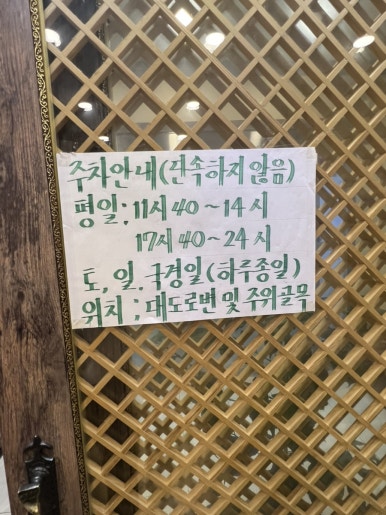 주차안내(단속하지 않음)
평일: 11시 40 ~ 14시
17시 40 ~ 24시
토, 일, 국경일(하루종일)
위치 : 대도로변 및 주위골목